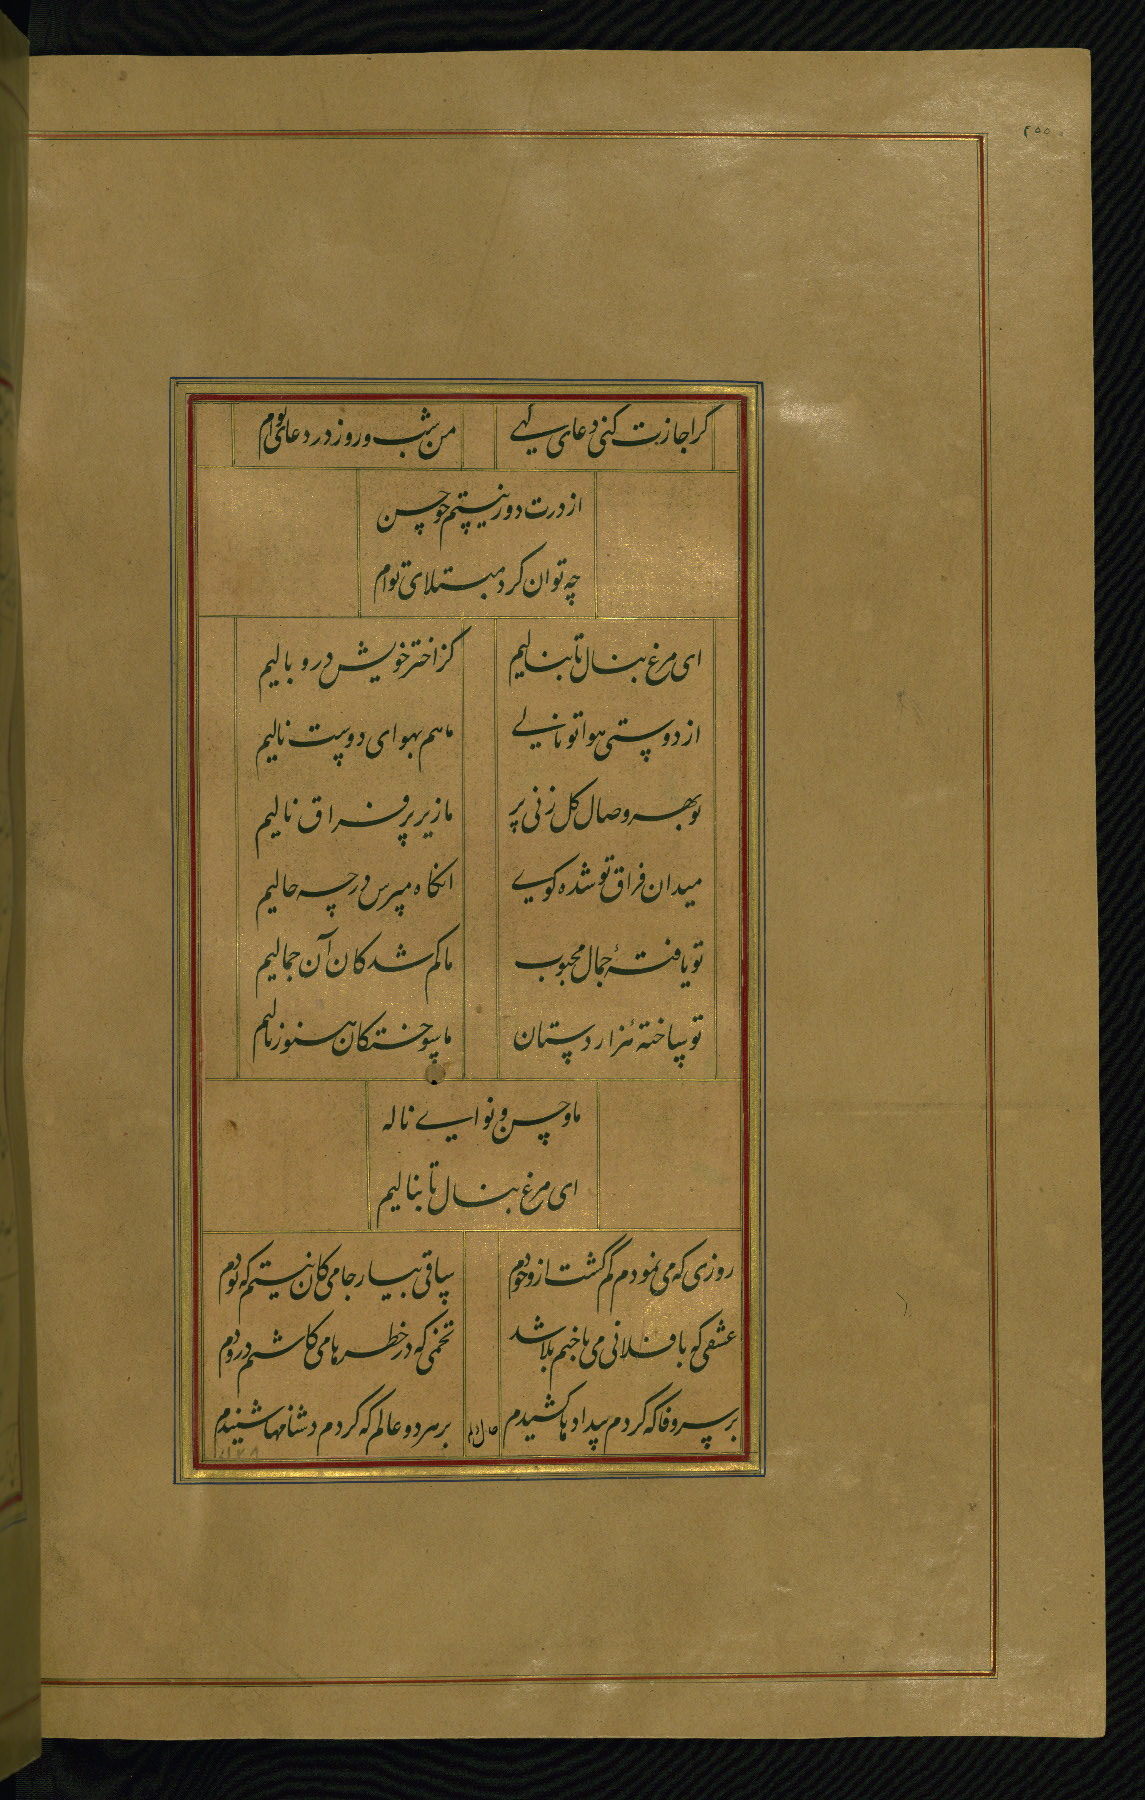 ۲۵۵
گر اجازت کنی دعای رهی من شب و روز در دعای توام
از درت دور نیستم چو حسن
چه توان کرد مبتلای توام
ای مرغ بنال تا بنالیم کز اختر خویش در وبالیم
از دوستی هوا تو نالی ما هم بهوای دوست نالیم
تو بهر وصال کل زنی پر ما زیر پر فراق نالیم
میدان فراق تو شده کویی انکاه مپرس در چه حالیم
تو یافتهٔ جمال محبوب ما کم شدکان آن جمالیم
تو ساختهٔ هزار دستان ما سوختکان هنوز لالیم
ما و حسن و نوایی ناله
ای مرغ بنال تا بنالیم
روزی که می نمودم گم گشت از وجودم ساقی بیار جامی کان نیستم که بودم
عشقی که با فلانی می باختم بلا شد تخمی که در خطرها می کاشتم درودم
بر سر وفا که کردم بیدادها کشیدم بر هر دو عالم که کردم دشنامها شنیدم